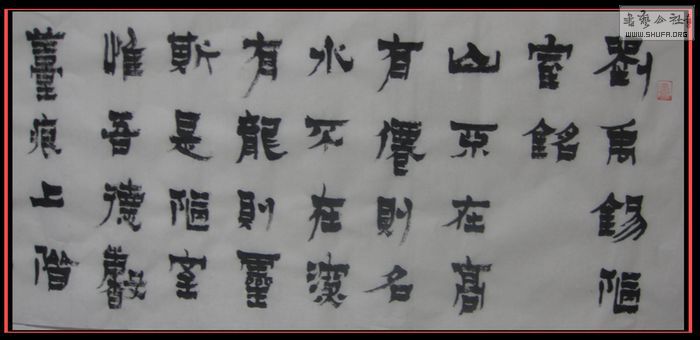 劉禹錫陋
室銘
山不在高
有僊則名
水不在深
有龍則靈
斯是陋室
惟吾德馨
薹痕上階
书艺公社
WWW.SHUFA.ORG